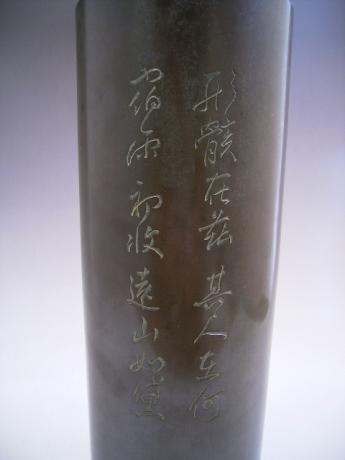 形骸在茲其人在何
宿雨初收遠山如黛